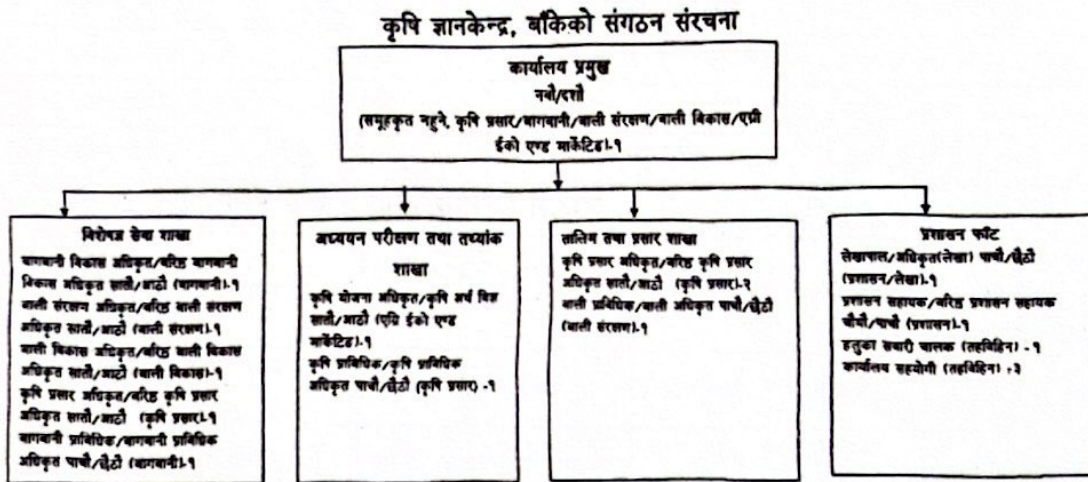 कृषि ज्ञानकेन्द्र, बाँकेको संगठन संरचना
कार्यालय प्रमुख
नवौ/दशौ
(समूहकृत नहुने, कृषि प्रसार/बागवानी/बाली संरक्षण/बाली विकास/एग्री
ईको एण्ड मार्केटिङ)-१
विशेषज्ञ सेवा शाखा
बागवानी विकास अधिकृत/बरिष्ठ बागवानी
विकास अधिकृत सातौ/आठौ (बागवानी)-१
बाली संरक्षन अधिकृत/बरिष्ठ बाली संरक्षण
अधिकृत सातौ/आठौ (बाली संरक्षण)-१
बाली विकास अधिकृत/बरिष्ठ बाली विकास
अधिकृत सातौ/आठौ (बाली विकास)-१
कृषि प्रसार अधिकृत/बरिष्ठ कृषि प्रसार
अधिकृत सातौ/आठौ (कृषि प्रसार)-१
बागवानी प्राबिधिक/बागवानी प्राबिधिक
अधिकृत पाचौ/छैठौ (बागवानी)-१
अध्ययन परीक्षण तथा तथ्यांक
शाखा
कृषि योजना अधिकृत/कृषि अर्थ विज्ञ
सातौ/आठौ (एग्रि ईको एण्ड
मार्केटिङ)-१
कृषि प्राबिधिक/कृषि प्राबिधिक
अधिकृत पाचौ/छैठौ (कृषि प्रसार) -१
तालिम तथा प्रसार शाखा
कृषि प्रसार अधिकृत/बरिष्ठ कृषि प्रसार
अधिकृत सातौ/आठौ (कृषि प्रसार)-२
बाली प्राबिधिक/बाली अधिकृत पाचौ/छैठौ
(बाली संरक्षण)-१
प्रशासन फाँट
लेखापाल/अधिकृत(लेखा) पाचौ/छैठौ
(प्रशासन/लेखा)-१
प्रशासन सहायक/बरिष्ठ प्रशासन सहायक
चौथौ/पाचौ (प्रशासन)-१
हलुका सवारी चालक (तहविहिन) -१
कार्यालय सहयोगी (तहविहिन) -३